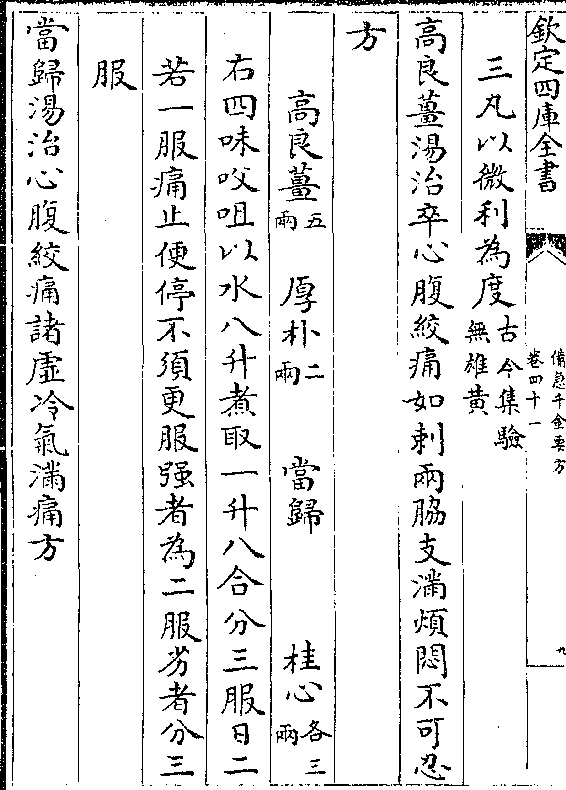 欽定四庫全書
備急千金要方
卷四十一
九
三丸以微利為度古今集驗無雄黄
高良薑湯治卒心腹絞痛如刺兩脇支滿煩悶不可忍
方
高良薑五兩 厚朴二兩 當歸 桂心各三兩
右四味㕮咀以水八升煮取一升八合分三服日二
若一服痛止便停不須更服强者為二服劣者分三
服
當歸湯治心腹絞痛諸虛冷氣滿痛方